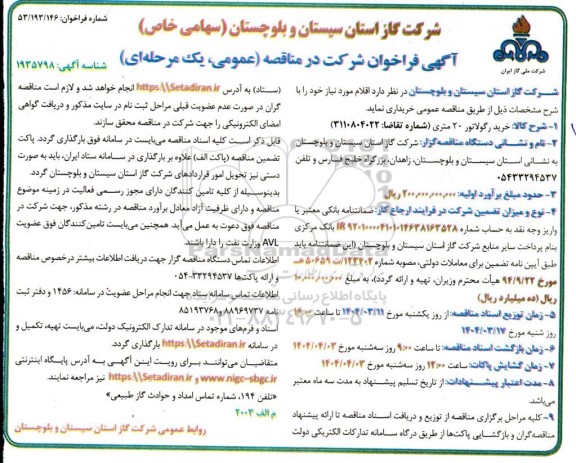 شماره فراخوان: ۵۳/۱۹۳/۱۴۶
شرکت گاز استان سیستان و بلوچستان (سهامی خاص)
آگهی فراخوان شرکت در مناقصه (عمومی، یک مرحله‌ای)
شناسه آگهی: ۱۹۳۵۷۹۸
شرکت ملی گاز ایران
شرکت گاز استان سیستان و بلوچستان در نظر دارد اقلام مورد نیاز خود را با
شرح مشخصات ذیل از طریق مناقصه عمومی خریداری نماید.
۱- شرح کالا: خرید رگولاتور ۲۰ متری (شماره تقاضا: ۳۱۱۰۸۰۴۰۲۲)
۲- نام و نشانی دستگاه مناقصه‌گزار: شرکت گاز استان سیستان و بلوچستان
به نشانی استان سیستان و بلوچستان، زاهدان، بزرگراه خلیج فارس و تلفن
۰۵۴۳۳۲۹۴۵۳۷
۳- حدود مبلغ برآورد اولیه: ۲۰۰,۰۰۰,۰۰۰,۰۰۰ ریال
۴- نوع و میزان تضمین شرکت در فرایند ارجاع کار: ضمانتنامه بانکی معتبر یا
واریز وجه نقد به حساب شماره IR ۹۲۰۱۰۰۰۰۴۱۰۱۰۱۴۶۳۸۱۶۳۵۲۸ بانک مرکزی
بنام پرداخت سایر منابع شرکت گاز استان سیستان و بلوچستان (این ضمانتنامه باید
طبق آیین نامه تضمین برای معاملات دولتی، مصوبه شماره ۱۲۳۴۰۲/ت ۵۰۶۵۹ هـ
مورخ ۹۴/۹/۲۲ هیأت محترم وزیران، تهیه و ارائه گردد)، به مبلغ ۱۰,۰۰۰,۰۰۰,۰۰۰
ریال (ده میلیارد ریال)
۵- زمان توزیع اسناد مناقصه: از روز یکشنبه مورخ ۱۴۰۴/۰۳/۱۱ تا ساعت ۱۶:۰۰
روز شنبه مورخ ۱۴۰۴/۰۳/۱۷
۶- زمان بازگشت اسناد مناقصه: تا ساعت ۹:۰۰ روز سه‌شنبه مورخ ۱۴۰۴/۰۴/۰۳
۷- زمان گشایش پاکات: ساعت ۱۲:۰۰ روز سه‌شنبه مورخ ۱۴۰۴/۰۴/۰۳
۸- مدت اعتبار پیشنهادات: از تاریخ تسلیم پیشنهاد به مدت سه ماه معتبر
می‌باشد
۹- کلیه مراحل برگزاری مناقصه از توزیع و دریافت اسناد مناقصه تا ارائه پیشنهاد
مناقصه‌گران و بازگشایی پاکت‌ها از طریق درگاه سامانه تدارکات الکتریکی دولت
(ستاد) به آدرس https:\\Setadiran.ir انجام خواهد شد و لازم است مناقصه
گران در صورت عدم عضویت قبلی مراحل ثبت نام در سایت مذکور و دریافت گواهی
امضای الکترونیکی را جهت شرکت در مناقصه محقق سازند.
قابل ذکر است کلیه اسناد مناقصه می‌بایست در سامانه فوق بارگذاری گردد. پاکت
تضمین مناقصه (پاکت الف) علاوه بر بارگذاری در سامانه ستاد ایران، باید به صورت
دستی نیز تحویل امور قراردادهای شرکت گاز استان سیستان و بلوچستان گردد.
بدینوسیله از کلیه تامین کنندگان دارای مجوز رسمی فعالیت در زمینه موضوع
مناقصه و دارای ظرفیت آزاد معادل برآورد مناقصه در رشته مذکور، جهت شرکت در
مناقصه فوق دعوت به عمل می‌آید. همچنین می‌بایست تامین‌کنندگان فوق عضویت
AVL وزارت نفت را دارا باشند.
اطلاعات تماس دستگاه مناقصه گزار جهت دریافت اطلاعات بیشتر درخصوص مناقصه
و ارائه پاکت‌ها ۰۵۴-۳۳۲۹۴۵۳۷
اطلاعات تماس سامانه ستاد جهت انجام مراحل عضویت در سامانه: ۱۴۵۶ و دفتر ثبت
نامه ۸۸۹۶۹۷۳۷ و ۸۵۱۹۳۷۶۸
اسناد و فرم‌های موجود در سامانه تدارک الکترونیک دولت، می‌بایست تهیه، تکمیل و
در سامانه https:\\Setadiran.ir بارگذاری گردد.
متقاضیان می‌توانند برای رویت این آگهی به آدرس پایگاه اینترنتی
www.nigc-sbgc.ir و https:\\Setadiran.ir نیز مراجعه نمایند.
«تلفن ۱۹۴، شماره تماس امداد و حوادث گاز طبیعی»
م الف ۲۰۰۳
روابط عمومی شرکت گاز استان سیستان و بلوچستان
ParsNamadData
پایگاه اطلاع رسانی
۰۲۱-۸۸۳۴۹۶۷۰-۵